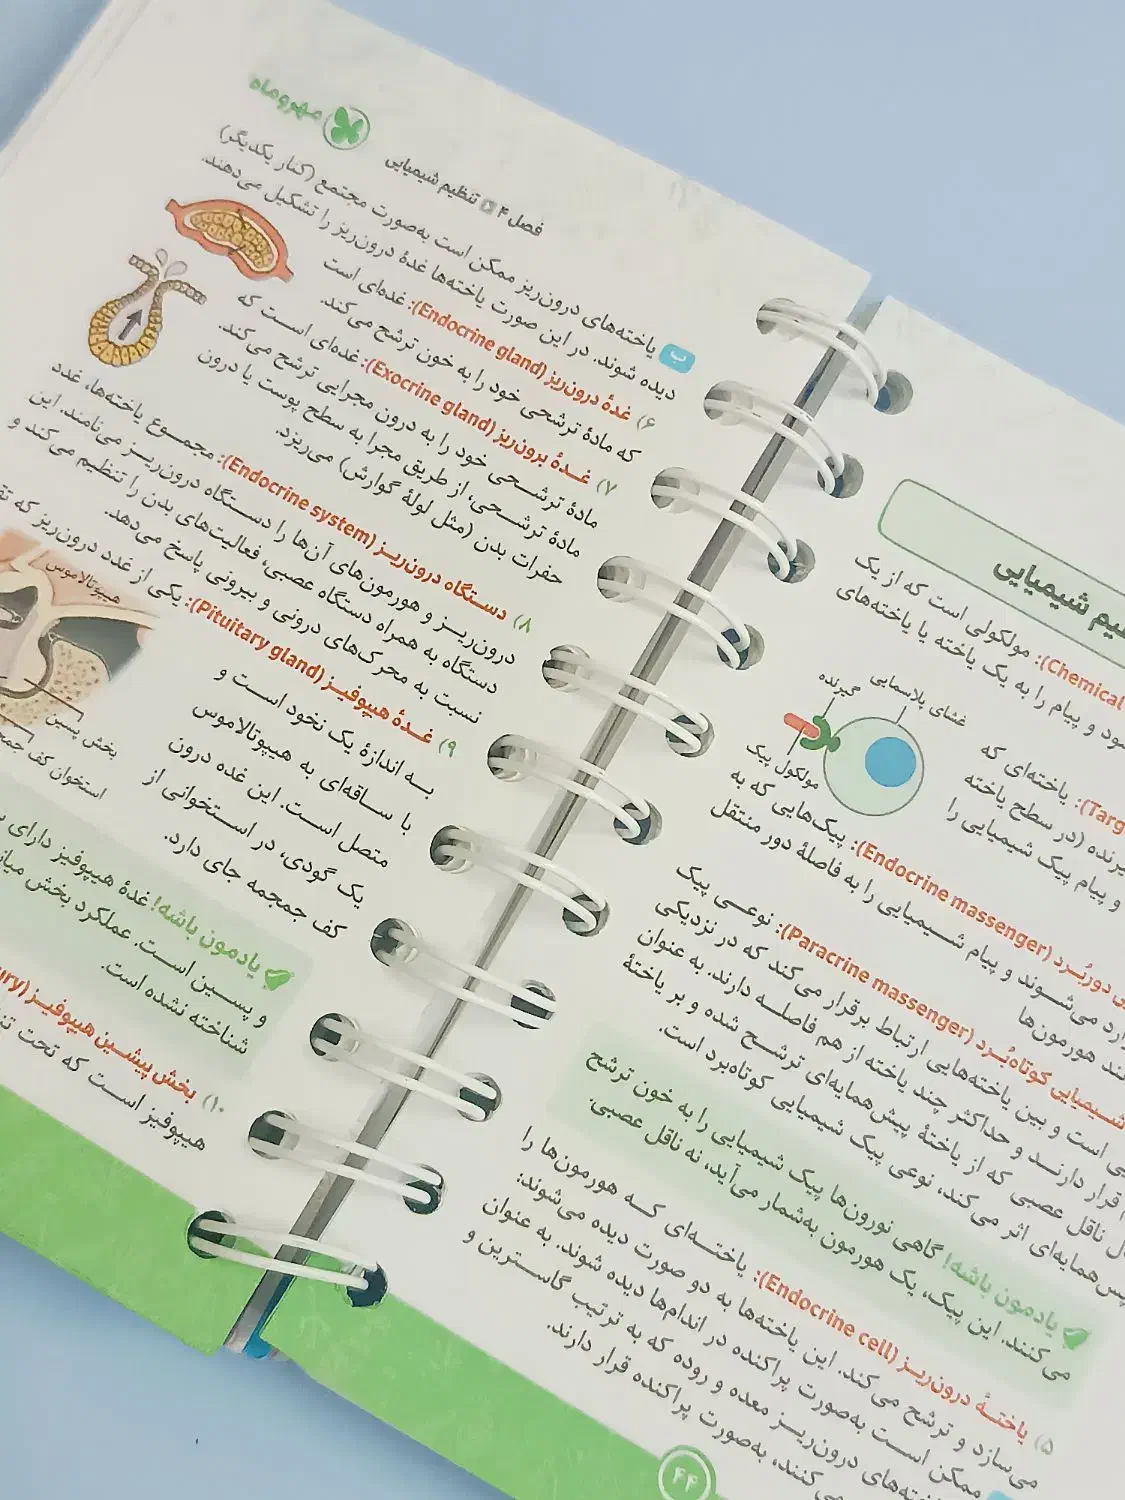 تنظیم شیمیایی
(Chemical
مولکولی است که از یک
شود و پیام را به یک یاخته یا یاخته‌های
گیرنده
غشای پلاسمایی
مولکول پیک
(Targ
یاخته‌ای که
گیرنده (در سطح یاخته
و پیام پیک شیمیایی را
دوربُرد (Endocrine massenger): پیک‌هایی که به
وارد می‌شوند و پیام شیمیایی را به فاصلهٔ دور منتقل
هورمون‌ها
شیمیایی کوتاه‌بُرد (Paracrine massenger): نوعی پیک
است و بین یاخته‌هایی ارتباط برقرار می‌کند که در نزدیکی
قرار دارند و حداکثر چند یاخته از هم فاصله دارند. به عنوان
ناقل عصبی که از یاختهٔ پیش‌همایه‌ای ترشح شده و بر یاختهٔ
پس‌همایه‌ای اثر می‌کند، نوعی پیک شیمیایی کوتاه‌برد است.
یادمون باشه! گاهی نورون‌ها پیک شیمیایی را به خون ترشح
می‌کنند. این پیک، یک هورمون به‌شمار می‌آید، نه ناقل عصبی.
۵) یاختهٔ درون‌ریز (Endocrine cell): یاخته‌ای که هورمون‌ها را
می‌سازد و ترشح می‌کند. این یاخته‌ها به دو صورت دیده می‌شوند:
ممکن است به‌صورت پراکنده در اندام‌ها دیده شوند. به عنوان
یاخته‌های درون‌ریز معده و روده که به ترتیب گاسترین و
می‌کنند، به‌صورت پراکنده قرار دارند.
۴۴
مهروماه
فصل ۴ تنظیم شیمیایی
ب یاخته‌های درون‌ریز ممکن است به‌صورت مجتمع (کنار یکدیگر)
دیده شوند. در این صورت یاخته‌ها غدهٔ درون‌ریز را تشکیل می‌دهند.
۶) غدهٔ درون‌ریز (Endocrine gland): غده‌ای است
که مادهٔ ترشحی خود را به خون ترشح می‌کند.
۷) غدهٔ برون‌ریز (Exocrine gland): غده‌ای است که
مادهٔ ترشحی خود را به درون مجرایی ترشح می‌کند.
مادهٔ ترشحی، از طریق مجرا به سطح پوست یا درون
حفرات بدن (مثل لولهٔ گوارش) می‌ریزد.
۸) دستگاه درون‌ریز (Endocrine system): مجموع یاخته‌ها، غدد
درون‌ریز و هورمون‌های آن‌ها را دستگاه درون‌ریز می‌نامند. این
دستگاه به همراه دستگاه عصبی، فعالیت‌های بدن را تنظیم می کند و
نسبت به محرک‌های درونی و بیرونی پاسخ می‌دهد.
۹) غدهٔ هیپوفیز (Pituitary gland): یکی از غدد درون‌ریز که
به اندازهٔ یک نخود است و
با ساقه‌ای به هیپوتالاموس
متصل است. این غده درون
یک گودی، در استخوانی از
کف جمجمه جای دارد.
هیپوتالاموس
بخش پسین
استخوان کف
یادمون باشه! غدهٔ هیپوفیز دارای
و پسین است. عملکرد بخش
شناخته نشده است.
۱۰) بخش پیشین هیپوفیز
هیپوفیز است که تحت